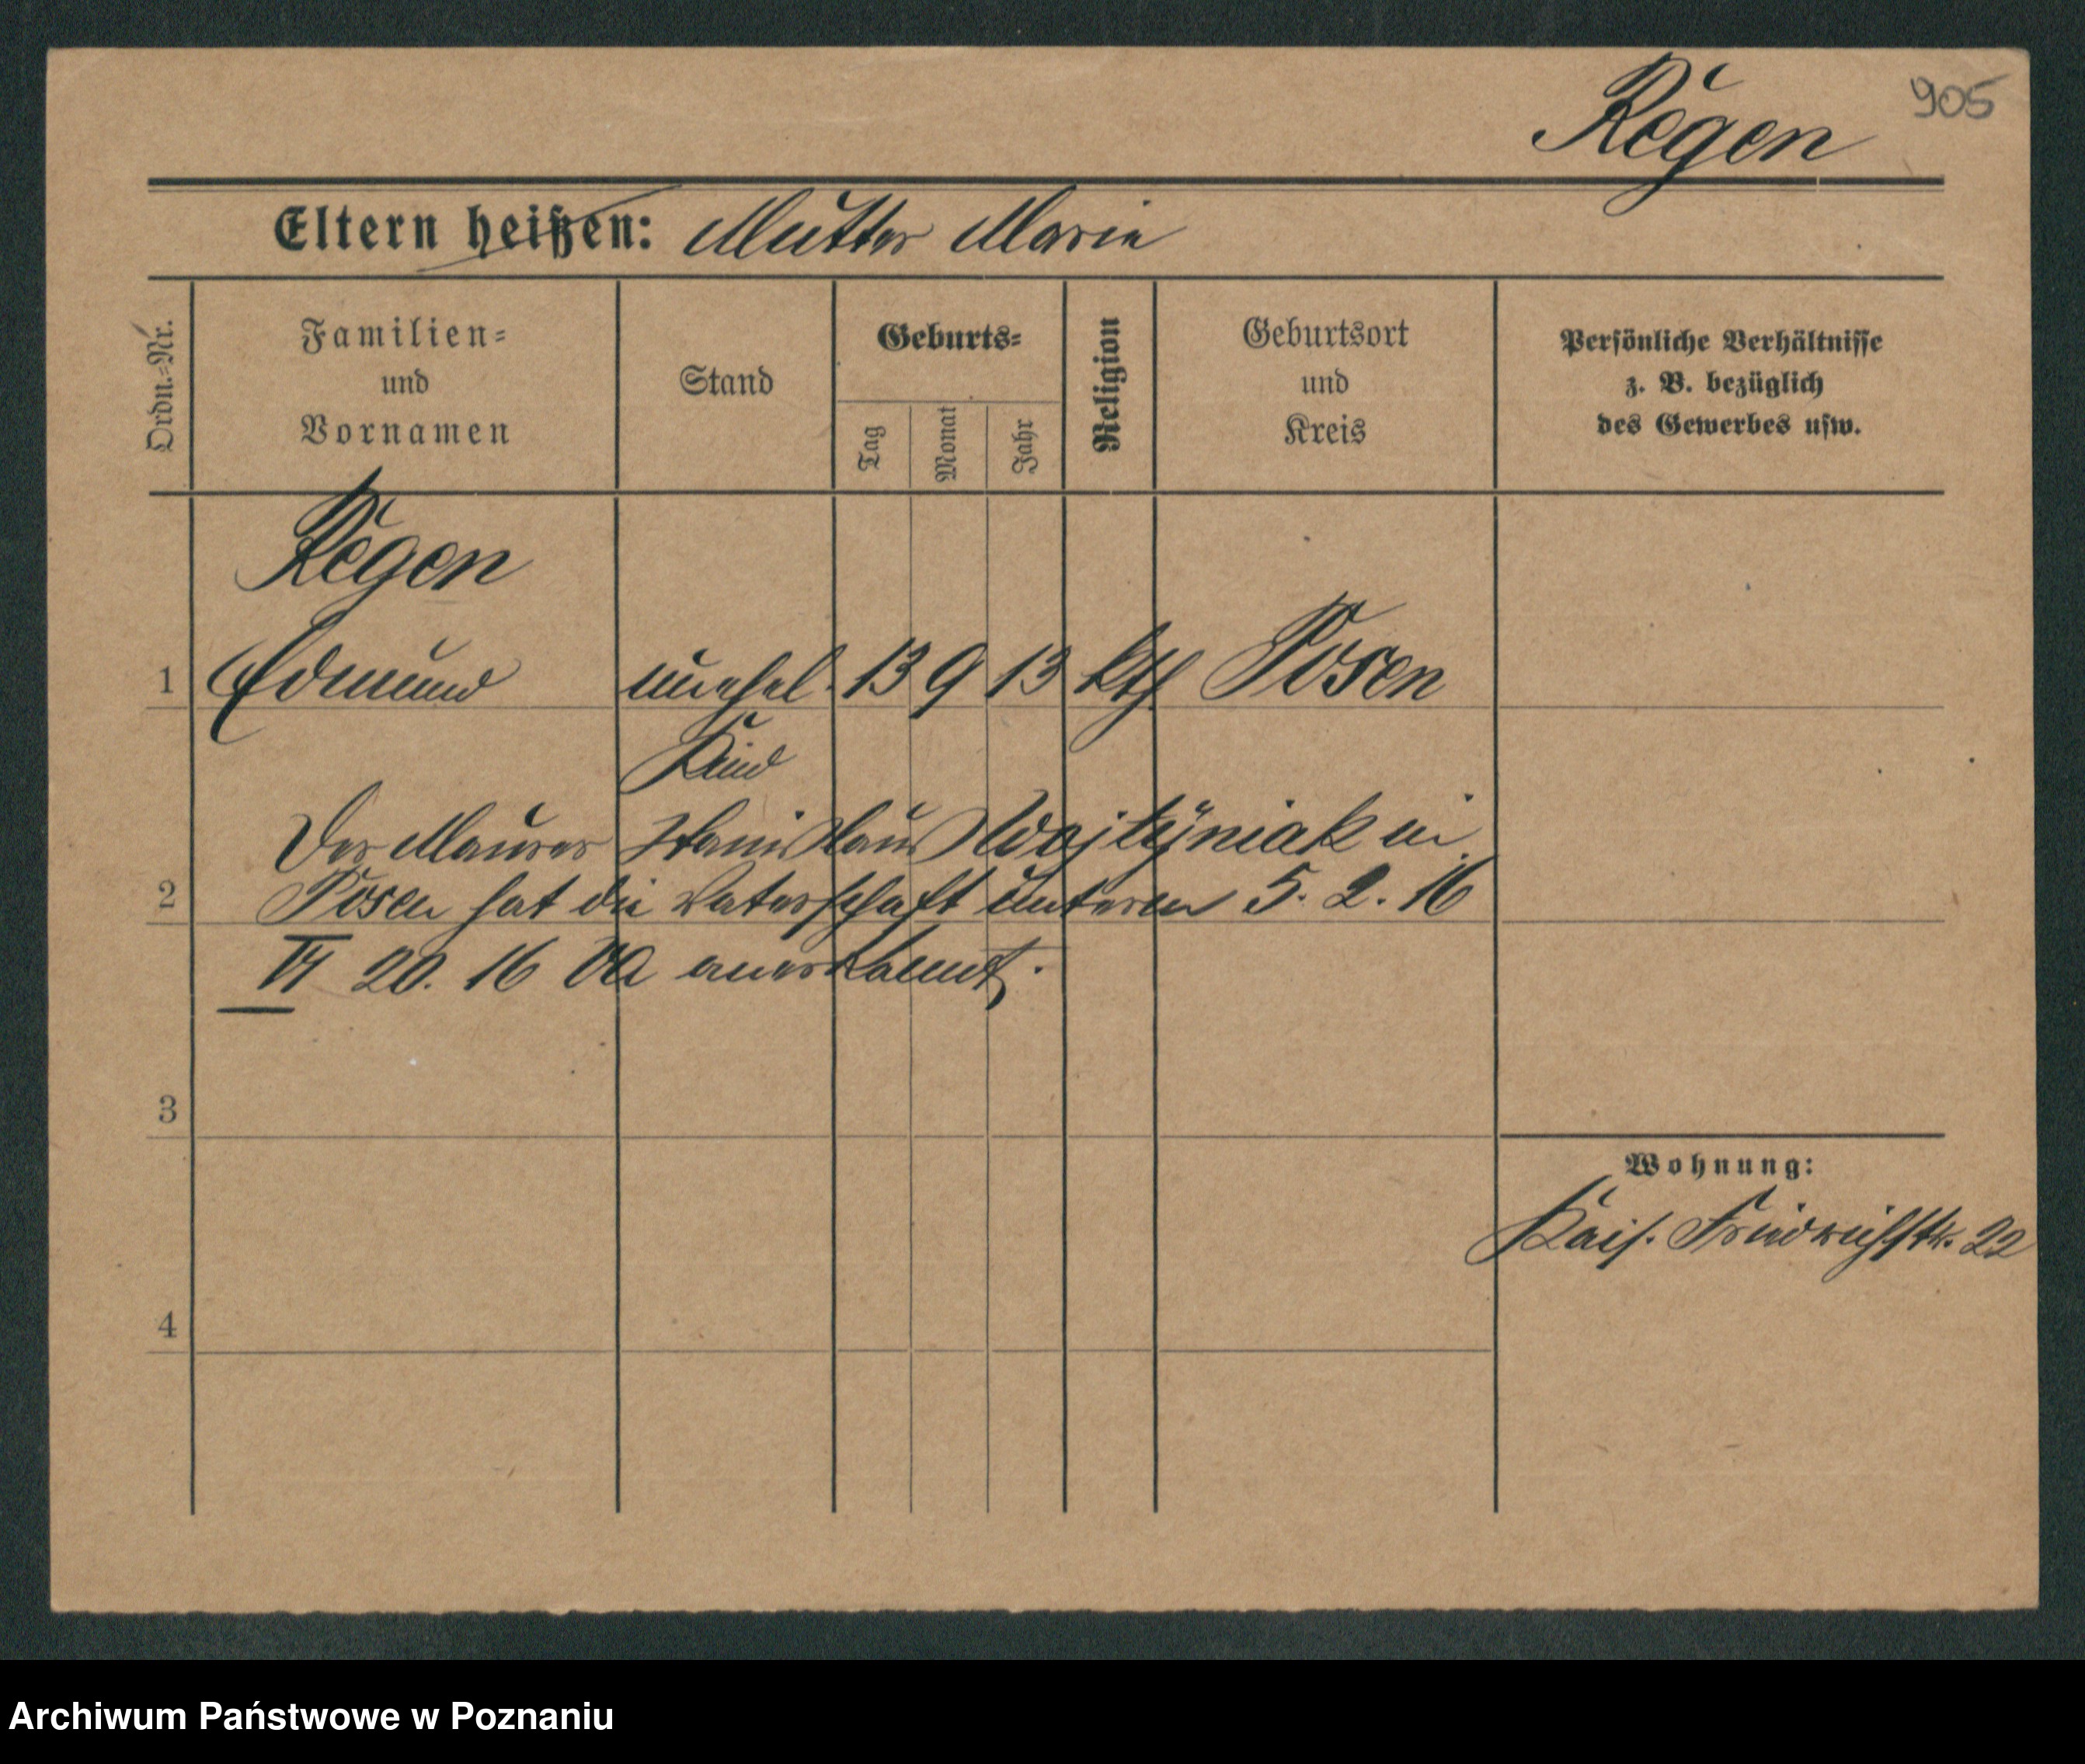 905
Regen
Eltern heißen: Mutter Marie
Ordn.-Nr.
Familien-
und
Vornamen
Stand
Geburts-
Tag
Monat
Jahr
Religion
Geburtsort
und
Kreis
Persönliche Verhältnisse
z. B. bezüglich
des Gewerbes usw.
Regen
1 Edmund unehel. 13 9 13 kth Posen
Kind
Der Maurer Stanislaus Wojtÿniak in
2 Posen hat die Vaterschaft unterm 5. 2. 16
VI 20. 16 VA anerkannt.
3
Wohnung:
Kais. Friedrichstr. 22
4
Archiwum Państwowe w Poznaniu